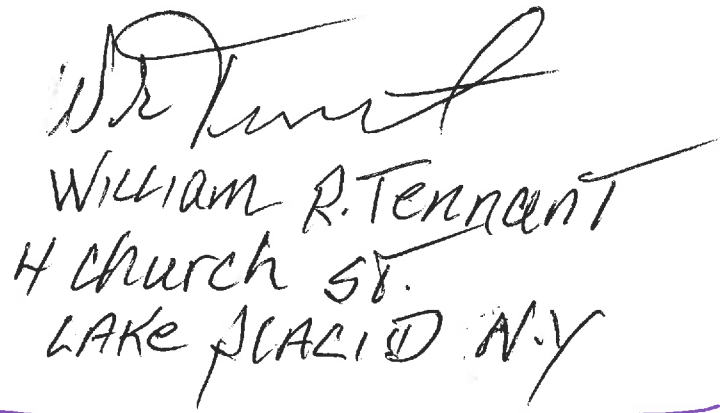 WR Tennant
William R. Tennant
4 Church ST.
LAKe PLACID N.Y